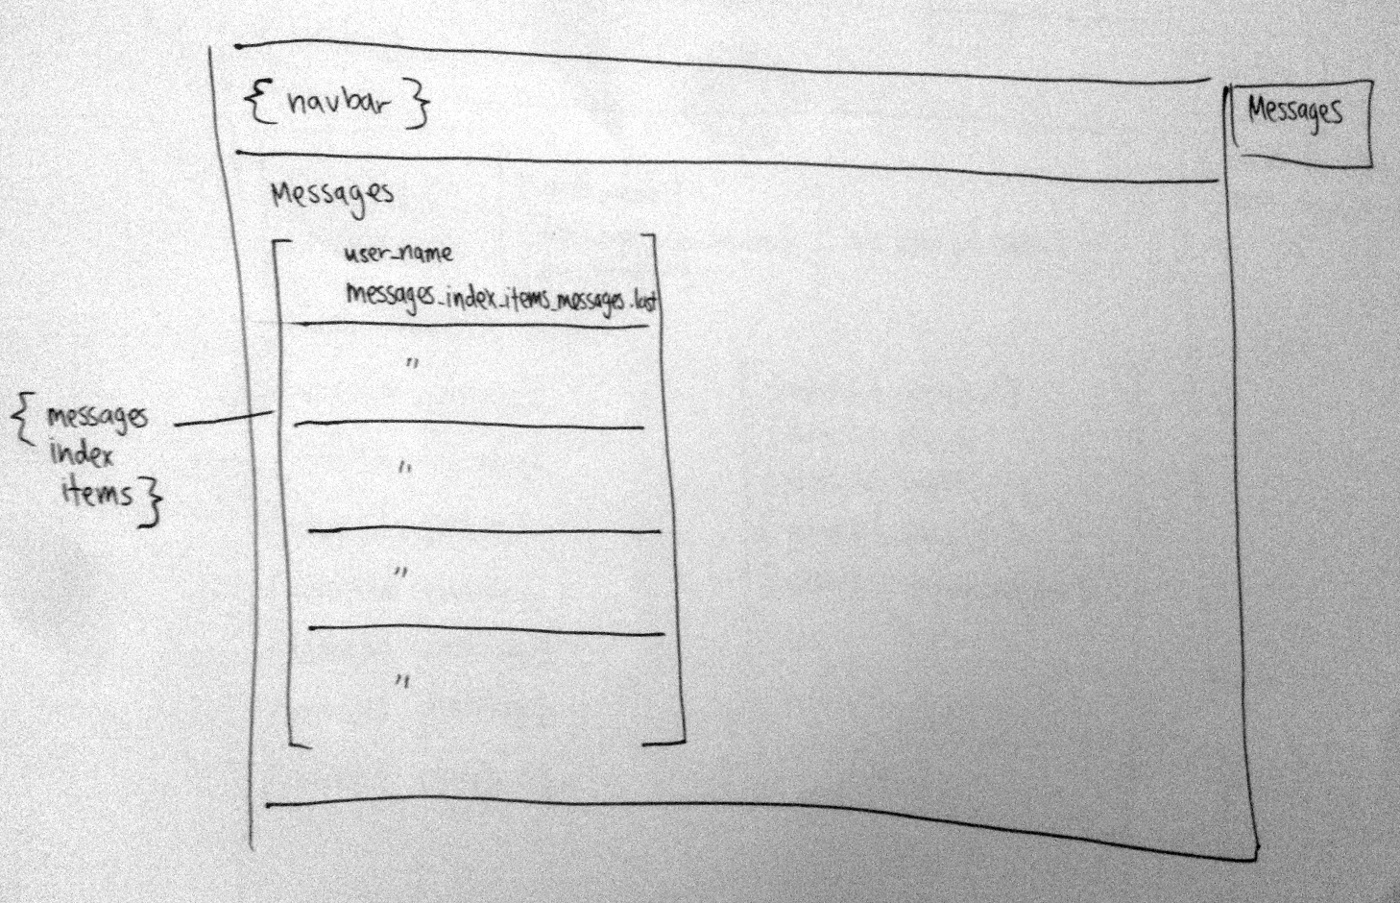 { navbar }
Messages
Messages
user_name
messages_index_items_messages.last
"
"
"
"
{ messages
index
items }